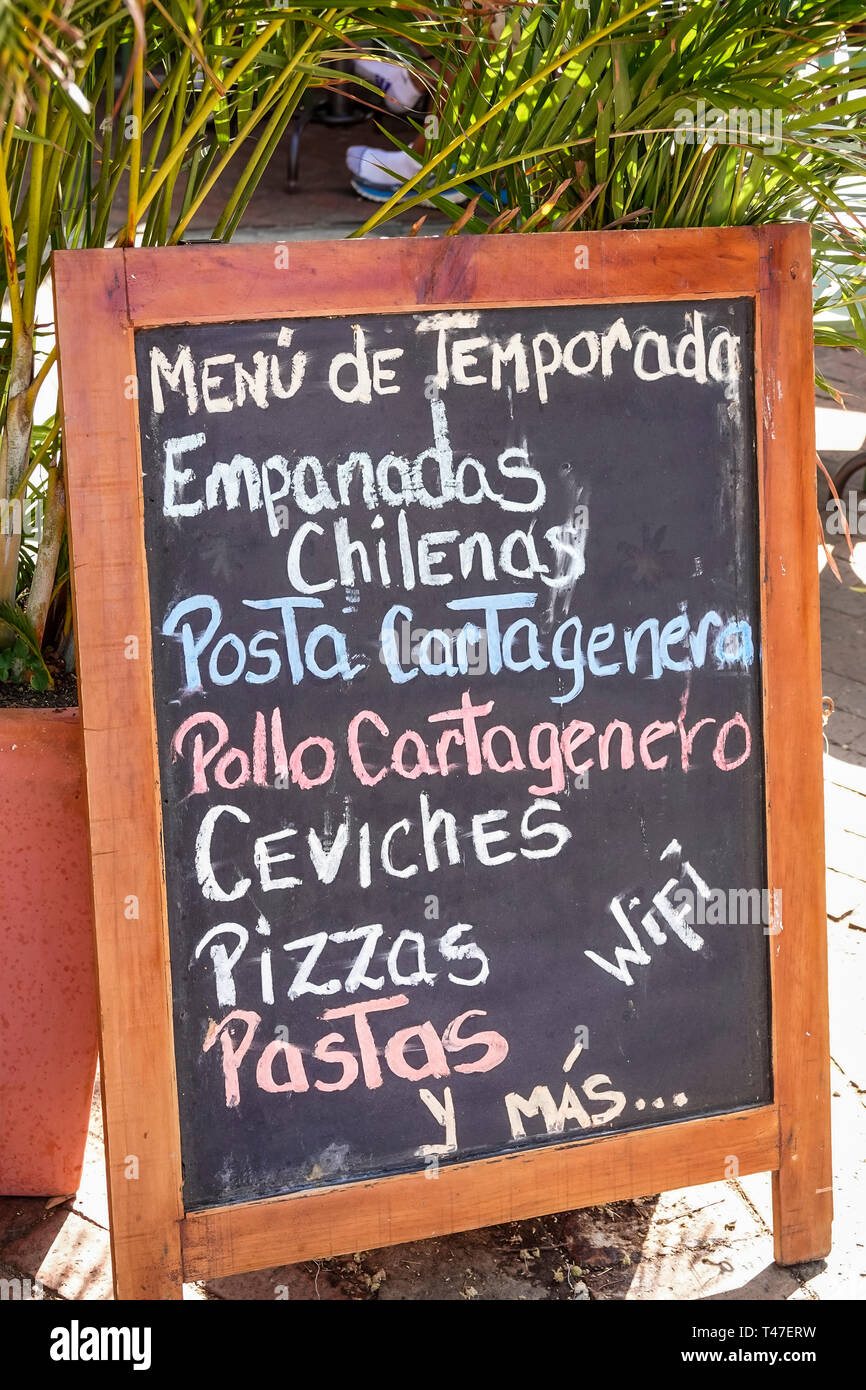 Menú de Temporada
Empanadas
Chilenas
Posta Cartagenera
Pollo Cartagenero
Ceviches
Pizzas
WiFi
Pastas
y más...
alamy
Image ID: T47ERW
www.alamy.com